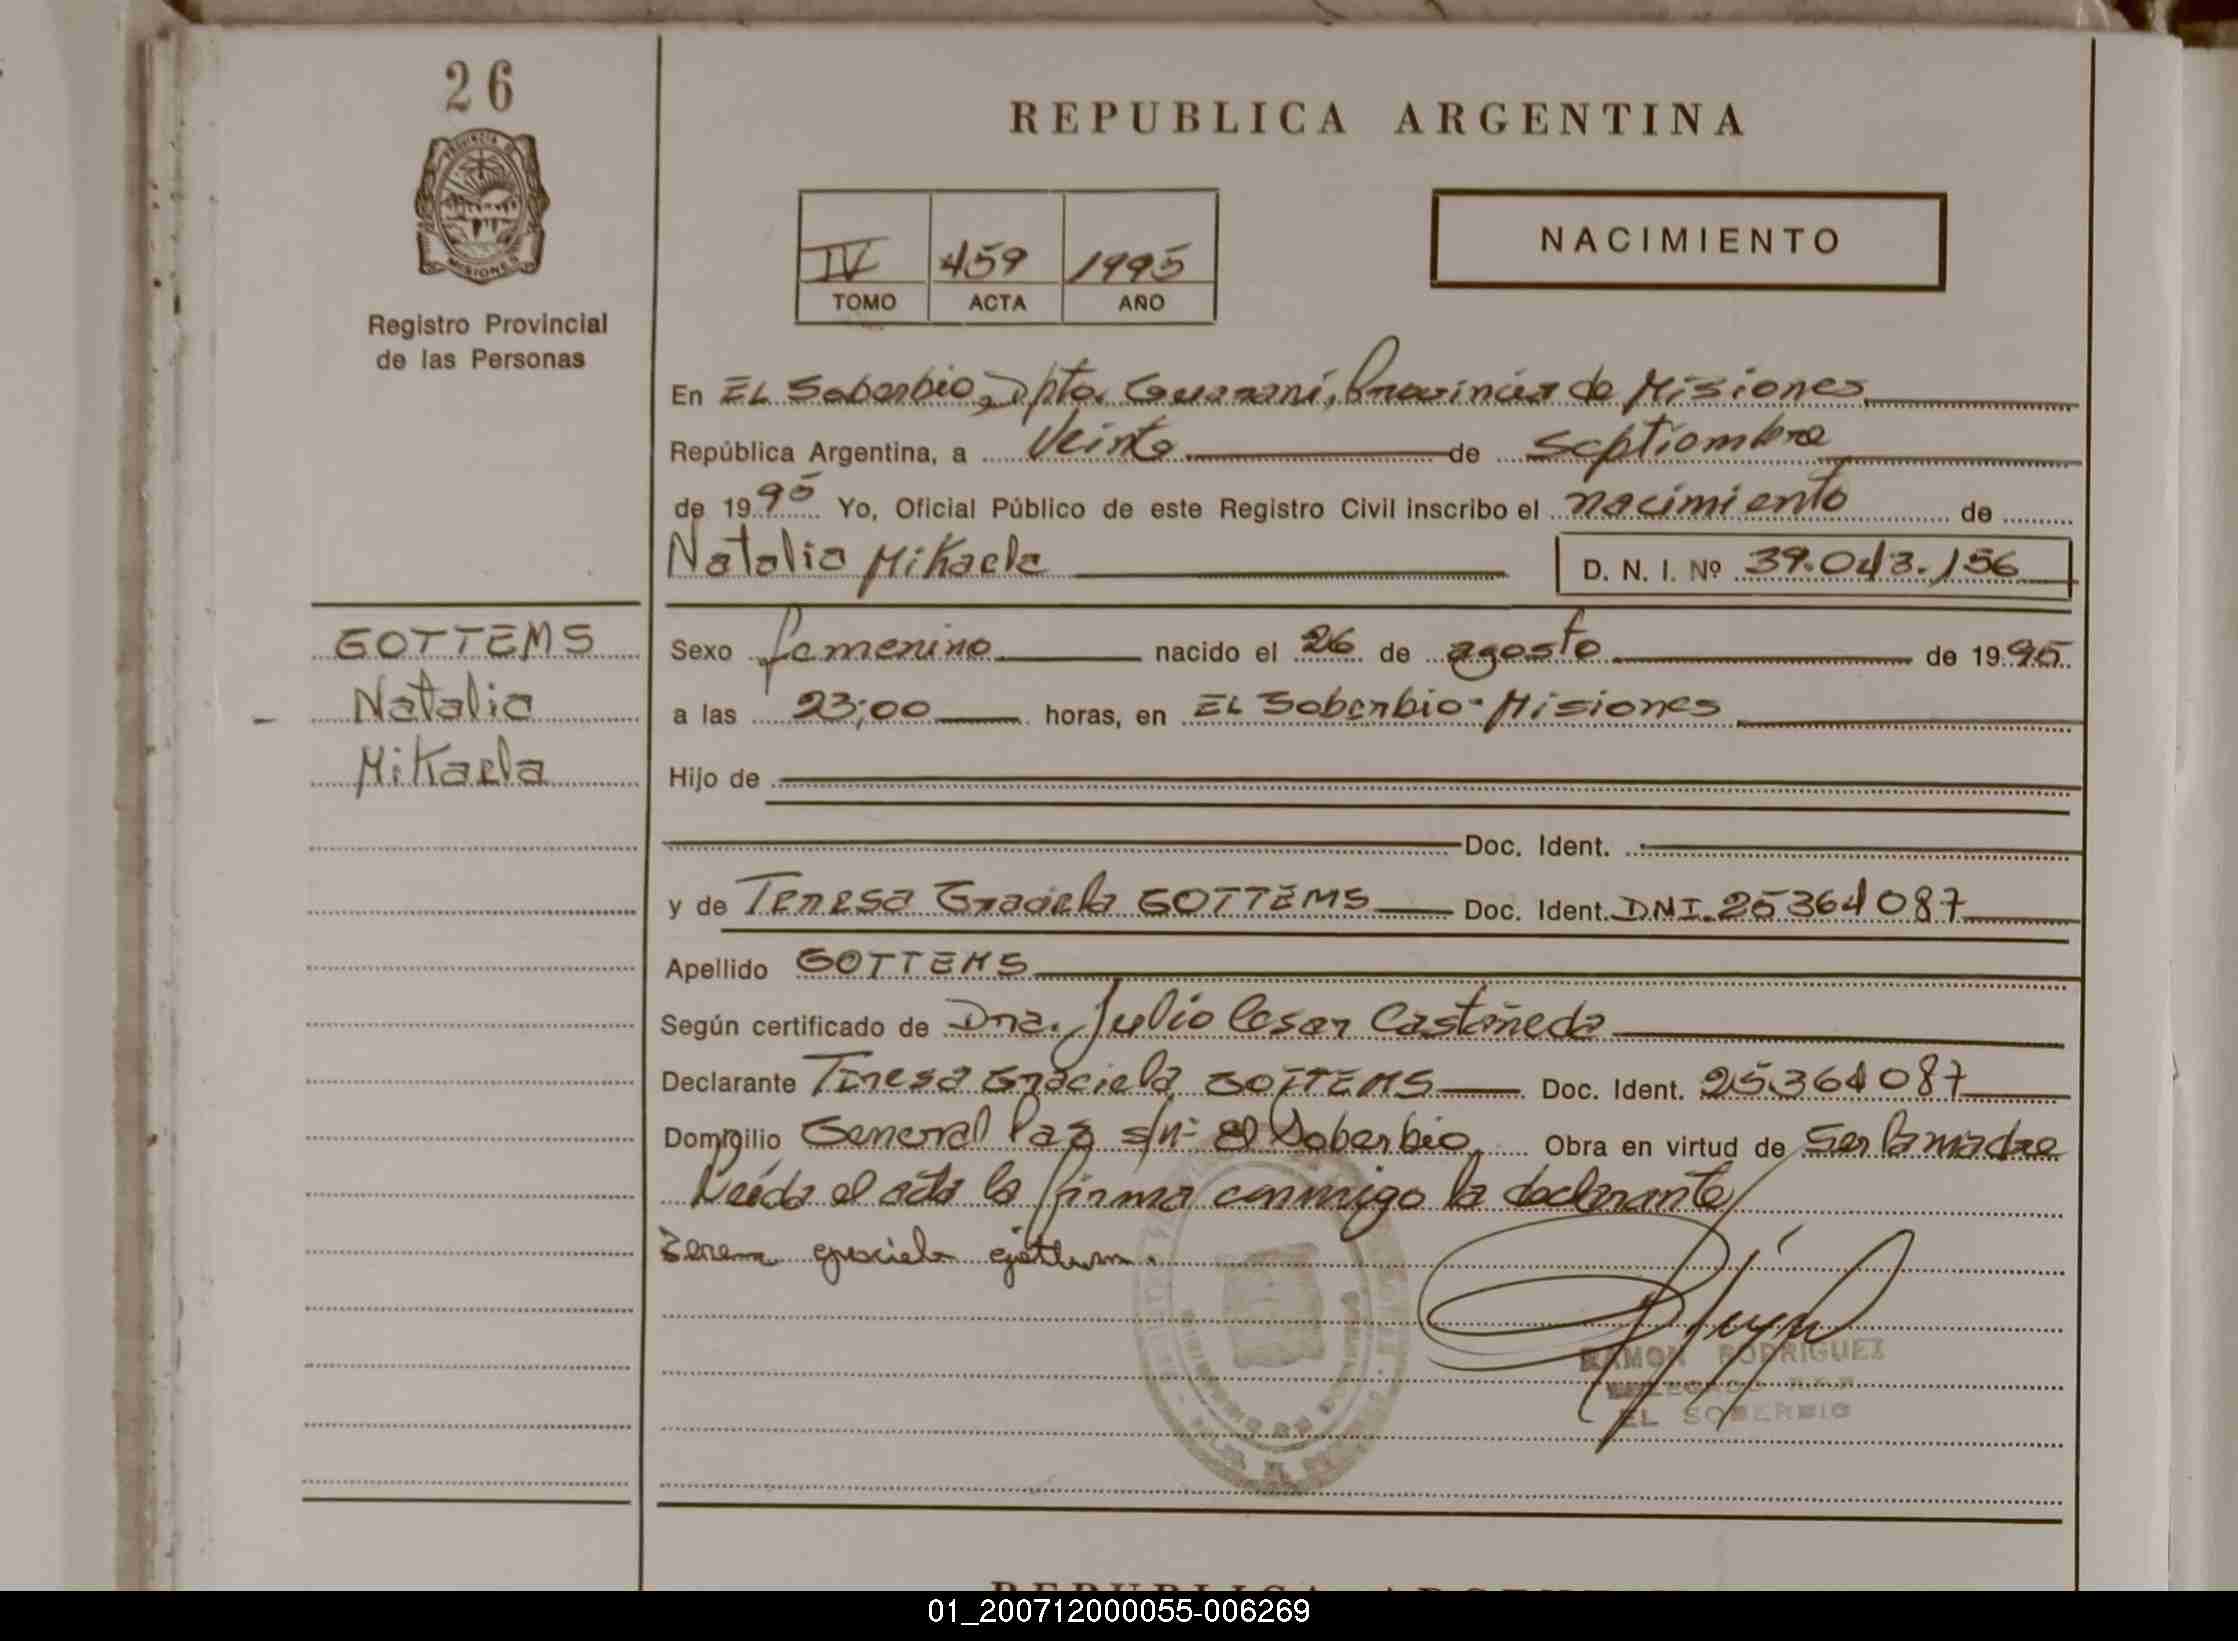 26
REPUBLICA ARGENTINA
PROVINCIA DE
MISIONES
IV 459 1995
TOMO ACTA AÑO
NACIMIENTO
Registro Provincial
de las Personas
En EL Soberbio, Dpto. Guaraní, Provincia de Misiones
República Argentina, a Veinte de Septiembre
de 1995 Yo, Oficial Público de este Registro Civil inscribo el nacimiento de
Natalia Mikaela D. N. I. Nº 39.043.156
GOTTEMS
Natalia
Mikaela
Sexo femenino nacido el 26 de agosto de 1995
a las 23:00 horas, en EL Soberbio - Misiones
Hijo de
Doc. Ident.
y de Teresa Graciela GOTTEMS Doc. Ident. DNI. 25364087
Apellido GOTTEMS
Según certificado de Dra. Julio Cesar Castañeda
Declarante Teresa Graciela GOTTEMS Doc. Ident. 25.364087
Domicilio General Paz s/nº El Soberbio Obra en virtud de Ser la madre
Leída el acta la firma conmigo la declarante
RAMON RODRIGUEZ
DELEGADO R.P.P.
EL SOBERBIO
REPUBLICA ARGENTINA
01_200712000055-006269